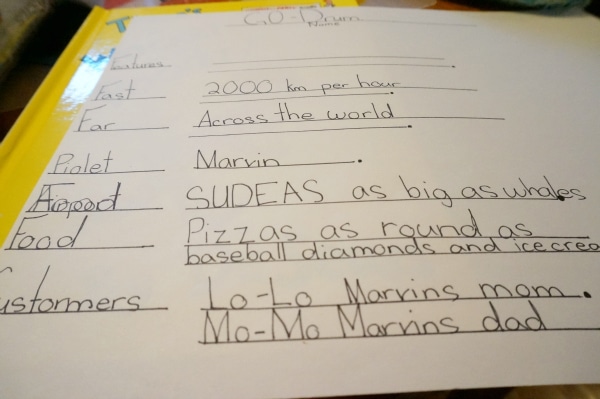 GO-Drum
Name
Features
Fast 2000 km per hour
Far Across the world.
Piolet Marvin.
Airport SUDEAS as big as whales
Food Pizzas as round as
baseball diamonds and icecrea
ustormers Lo-Lo Marvins mom.
Mo-Mo Marvins dad